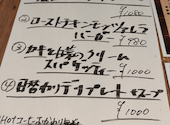 ¥1080
②ローストチキンモッツァレラ
バーガー ¥980
③カキと春のクリーム
スパゲッティー ¥1000
④日替わりデリプレート +スープ
¥1000
HOTコーヒーおかわり無料